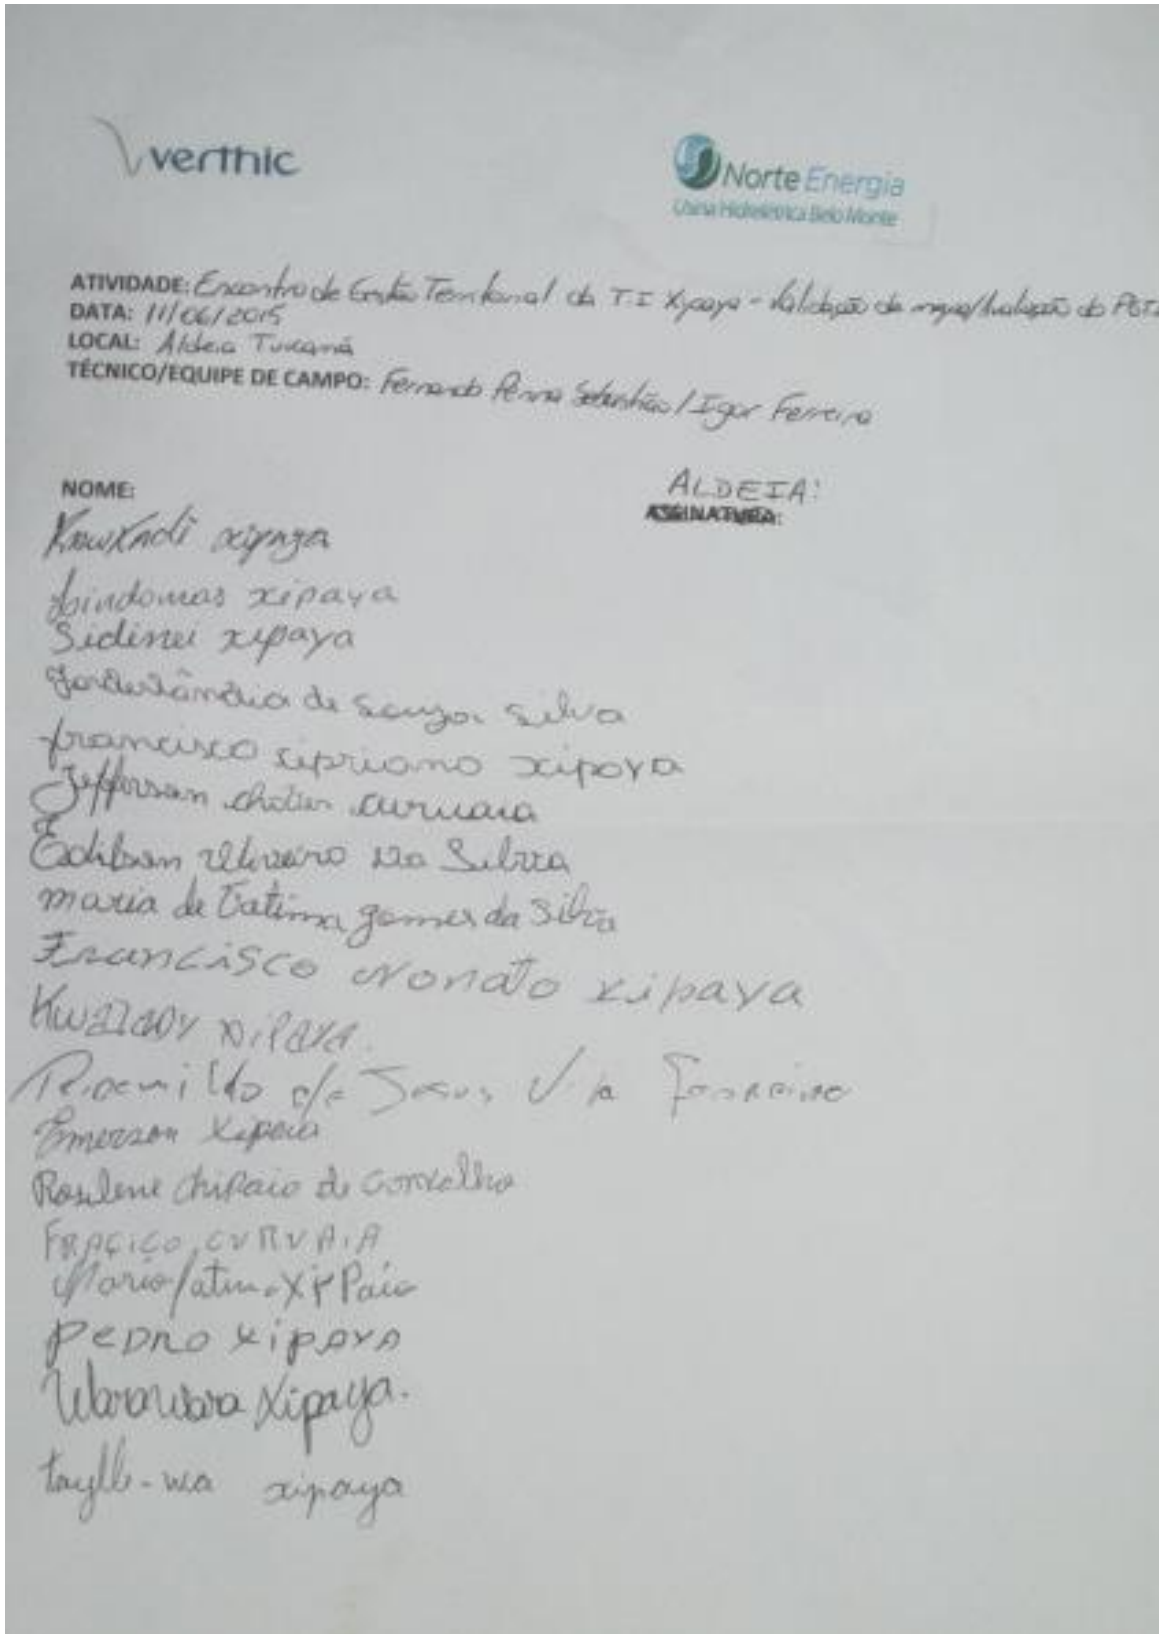 verthic
Norte Energia
Usina Hidrelétrica Belo Monte
ATIVIDADE: Encontro de Gestão Territorial da T.I Xipaya - Validação do mapa/Avaliação do PGT
DATA: 11/06/2015
LOCAL: Aldeia Tucamã
TÉCNICO/EQUIPE DE CAMPO: Fernando Penna Sebastião / Igor Ferreira
NOME:
ALDEIA:
ASSINATURA:
xipaya
Lindomas xipaya
Sidinei xipaya
de Souza Silva
francisco sipriano xipaya
Jefferson curuaia
da Silva
maria de Fatima gomes da Silva
Francisco Nonato xipaya
xipaya.
de Jesus
Emerson Xipaia
Roselene chipaio de Carvalho
FRACICO CURUAIA
Maria fatima Xipaia
Pedro xipaya
Warawara Xipaya.
taylle-wa xipaya